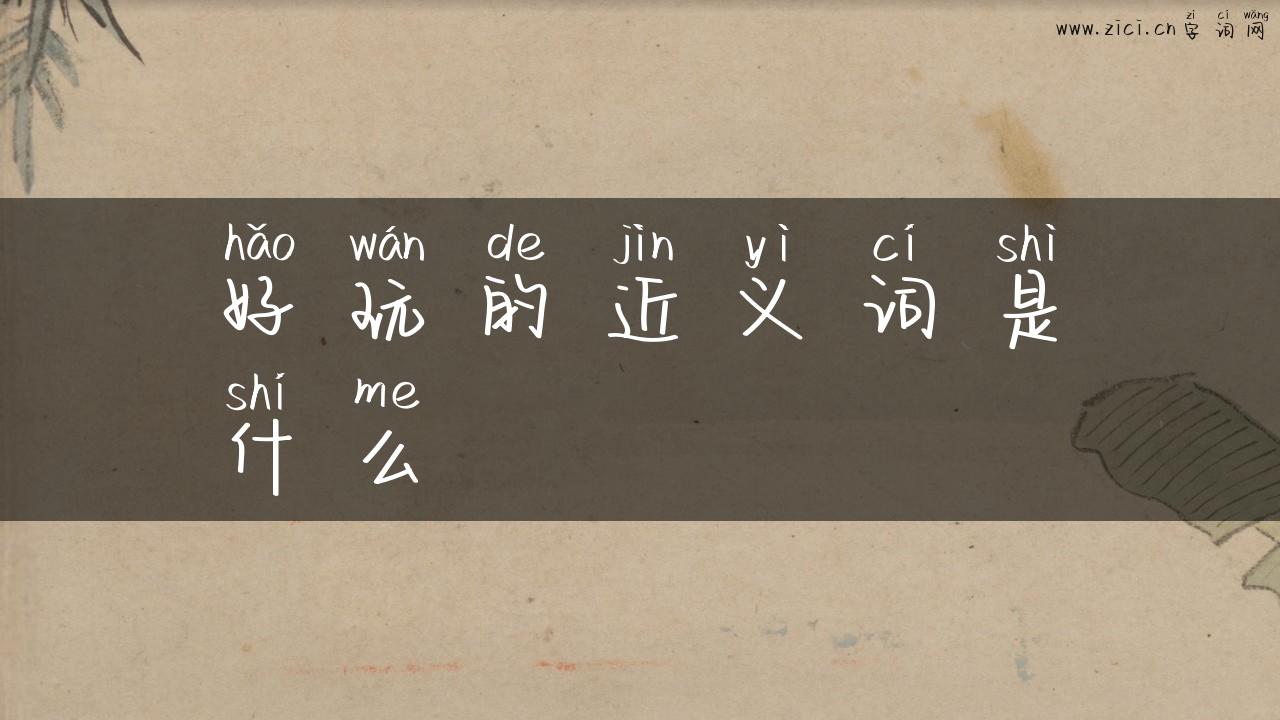 zì cí wǎng
www.zici.cn 字词网
hǎo wán de jìn yì cí shì
好玩的近义词是
shí me
什么